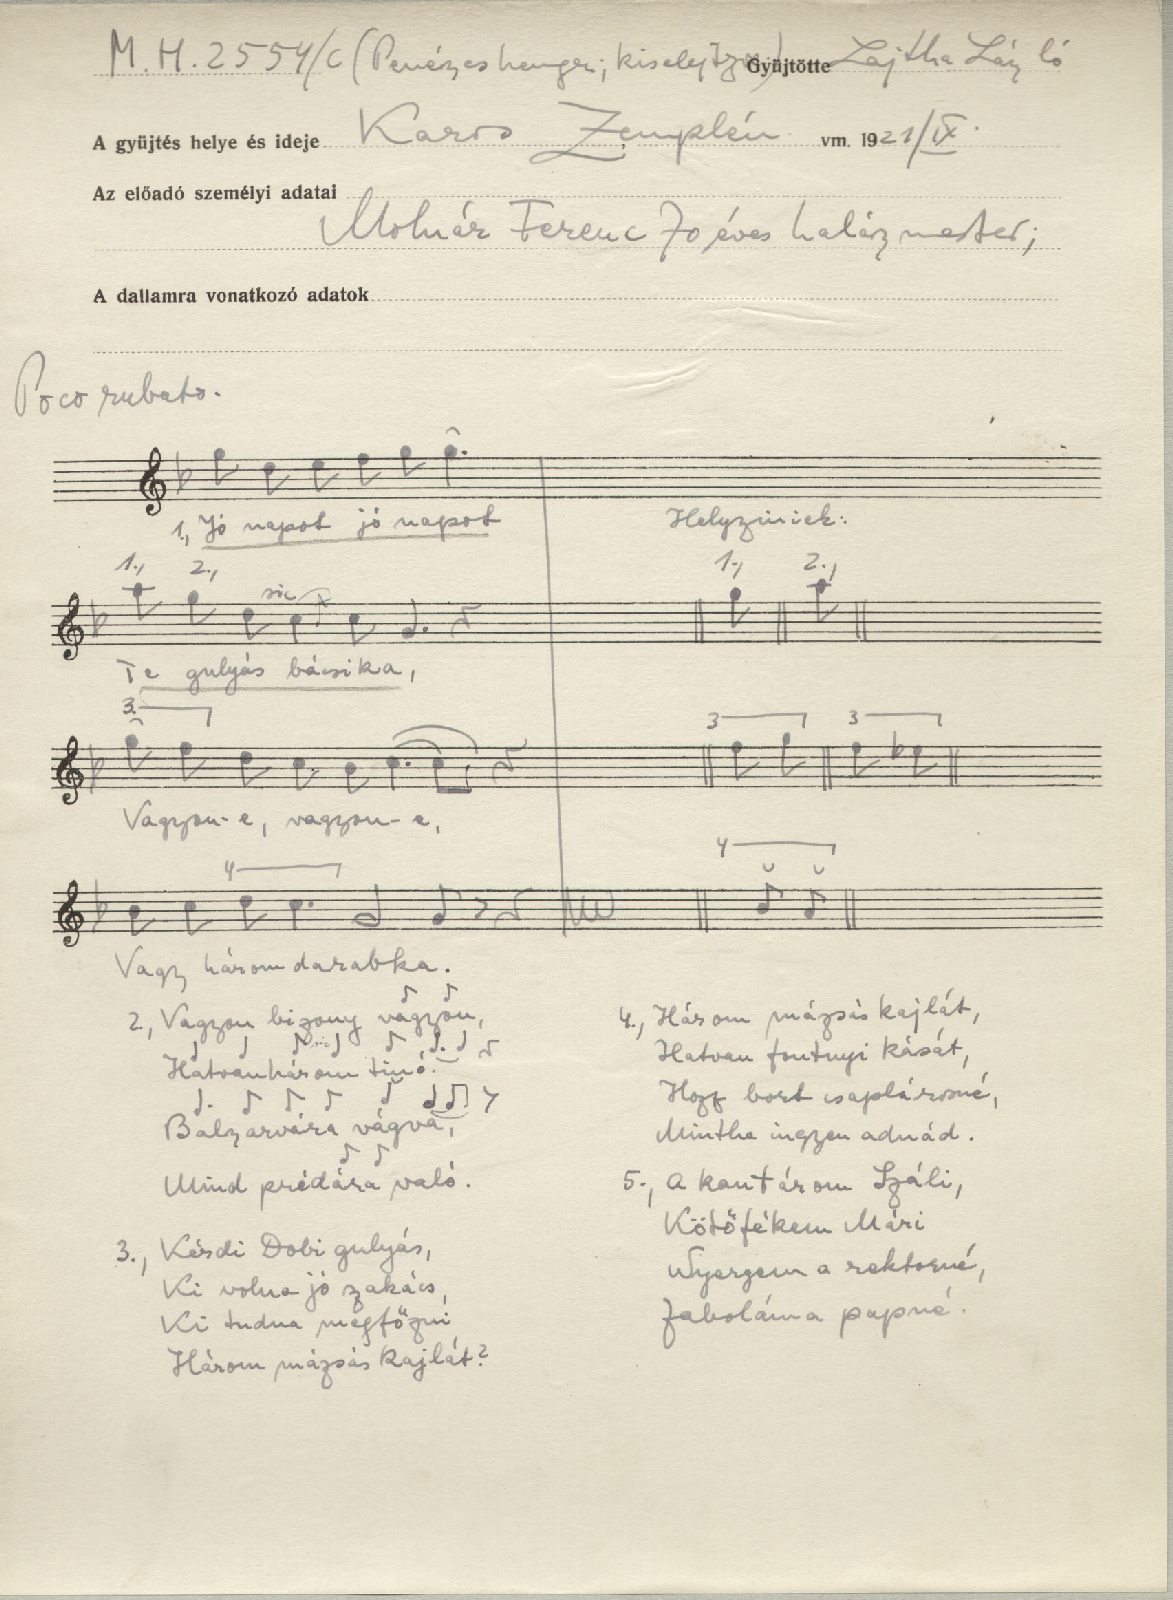 M.H. 2554/c (Penészes henger; kiselejtzve) Gyüjtötte Lajtha László
A gyüjtés helye és ideje Karos Zemplén vm. 1921/IX.
Az előadó személyi adatai
Molnár Ferenc 70 éves halászmester;
A dallamra vonatkozó adatok
Poco rubato.
1., Jó napot jó napot Helyziniek:
1., 2., sic 1., 2.,
Te gulyás bácsika,
3. 3 3
Vagyon-e, vagyon-e,
4 4
Vagy három darabka.
2., Vagyon bizony vagyon,
sic
Hatvanhárom tinó.
Balzarvára vágva,
Mind prédára való.
3., Késdi Dobi gulyás,
Ki volna jó szakács,
Ki tudna megfőzni
Három mázsás kajlát?
4., Három mázsás kajlát,
Hatvan fontnyi kását,
Hozz bort csaplárosné,
Mintha ingyen adnád.
5., A kantárom Száli,
Kötőfékem Mári
Nyergem a rektorné,
Zabolám a papné.